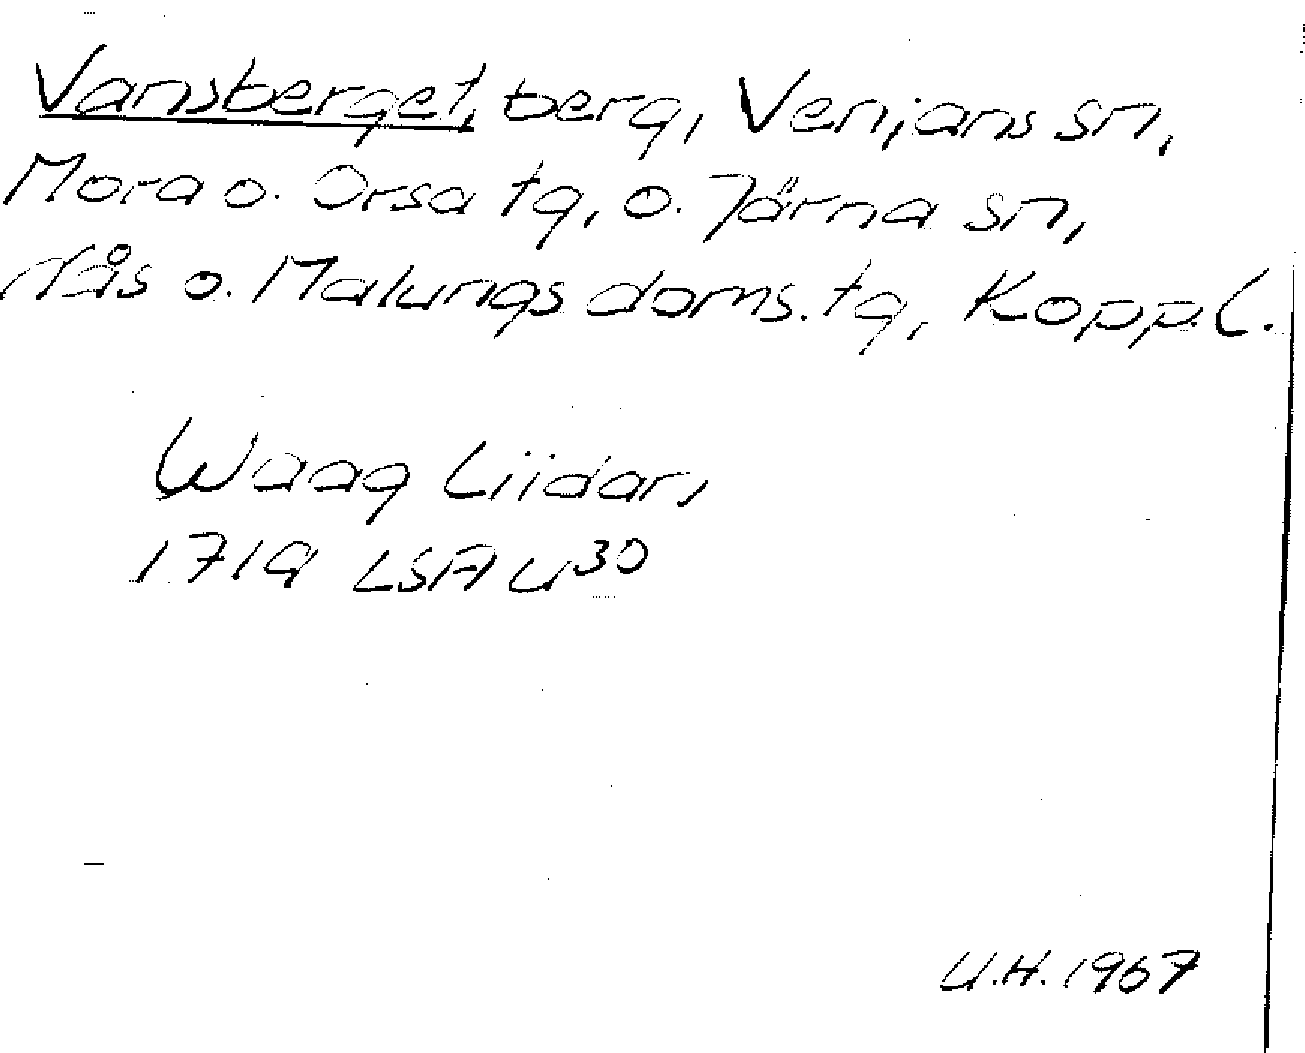 Vansberget, berg, Venjans sn,
Mora o. Orsa tg, o. Järna sn,
Nås o. Malungs doms. tg, Kopp. l.
Waag Liidar,
1719 LSA U30
U.H. 1967